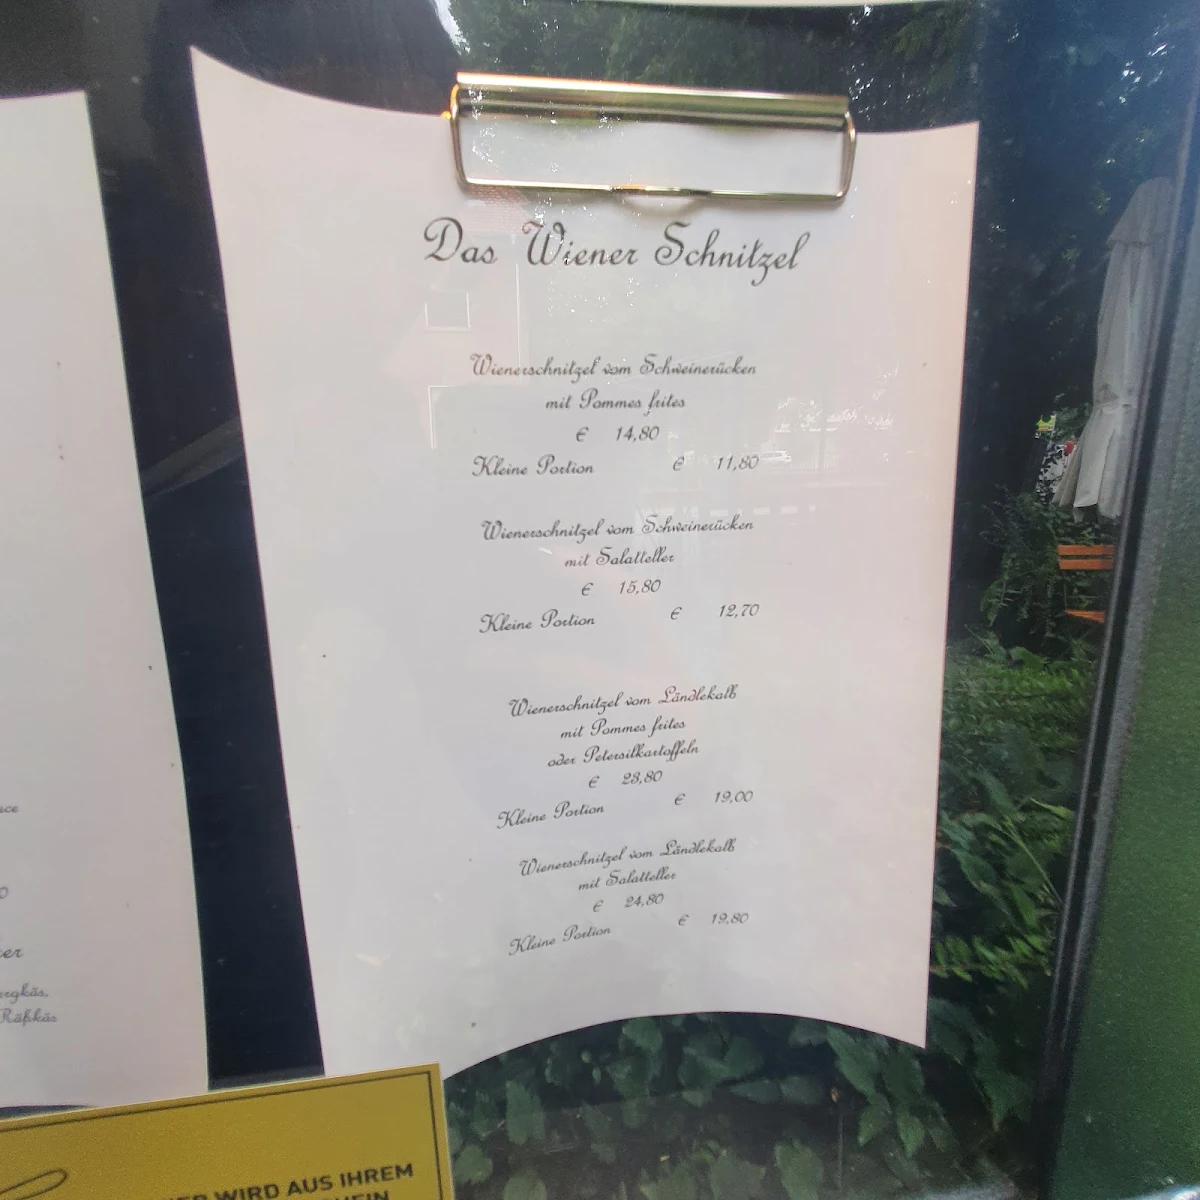 Das Wiener Schnitzel
Wienerschnitzel vom Schweinerücken
mit Pommes frites
€ 14,80
Kleine Portion € 11,80
Wienerschnitzel vom Schweinerücken
mit Salatteller
€ 15,80
Kleine Portion € 12,70
Wienerschnitzel vom Ländlekalb
mit Pommes frites
oder Petersilkartoffeln
€ 23,80
Kleine Portion € 19,00
Wienerschnitzel vom Ländlekalb
mit Salatteller
€ 24,80
Kleine Portion € 19,80
Räßkäs
WIRD AUS IHREM